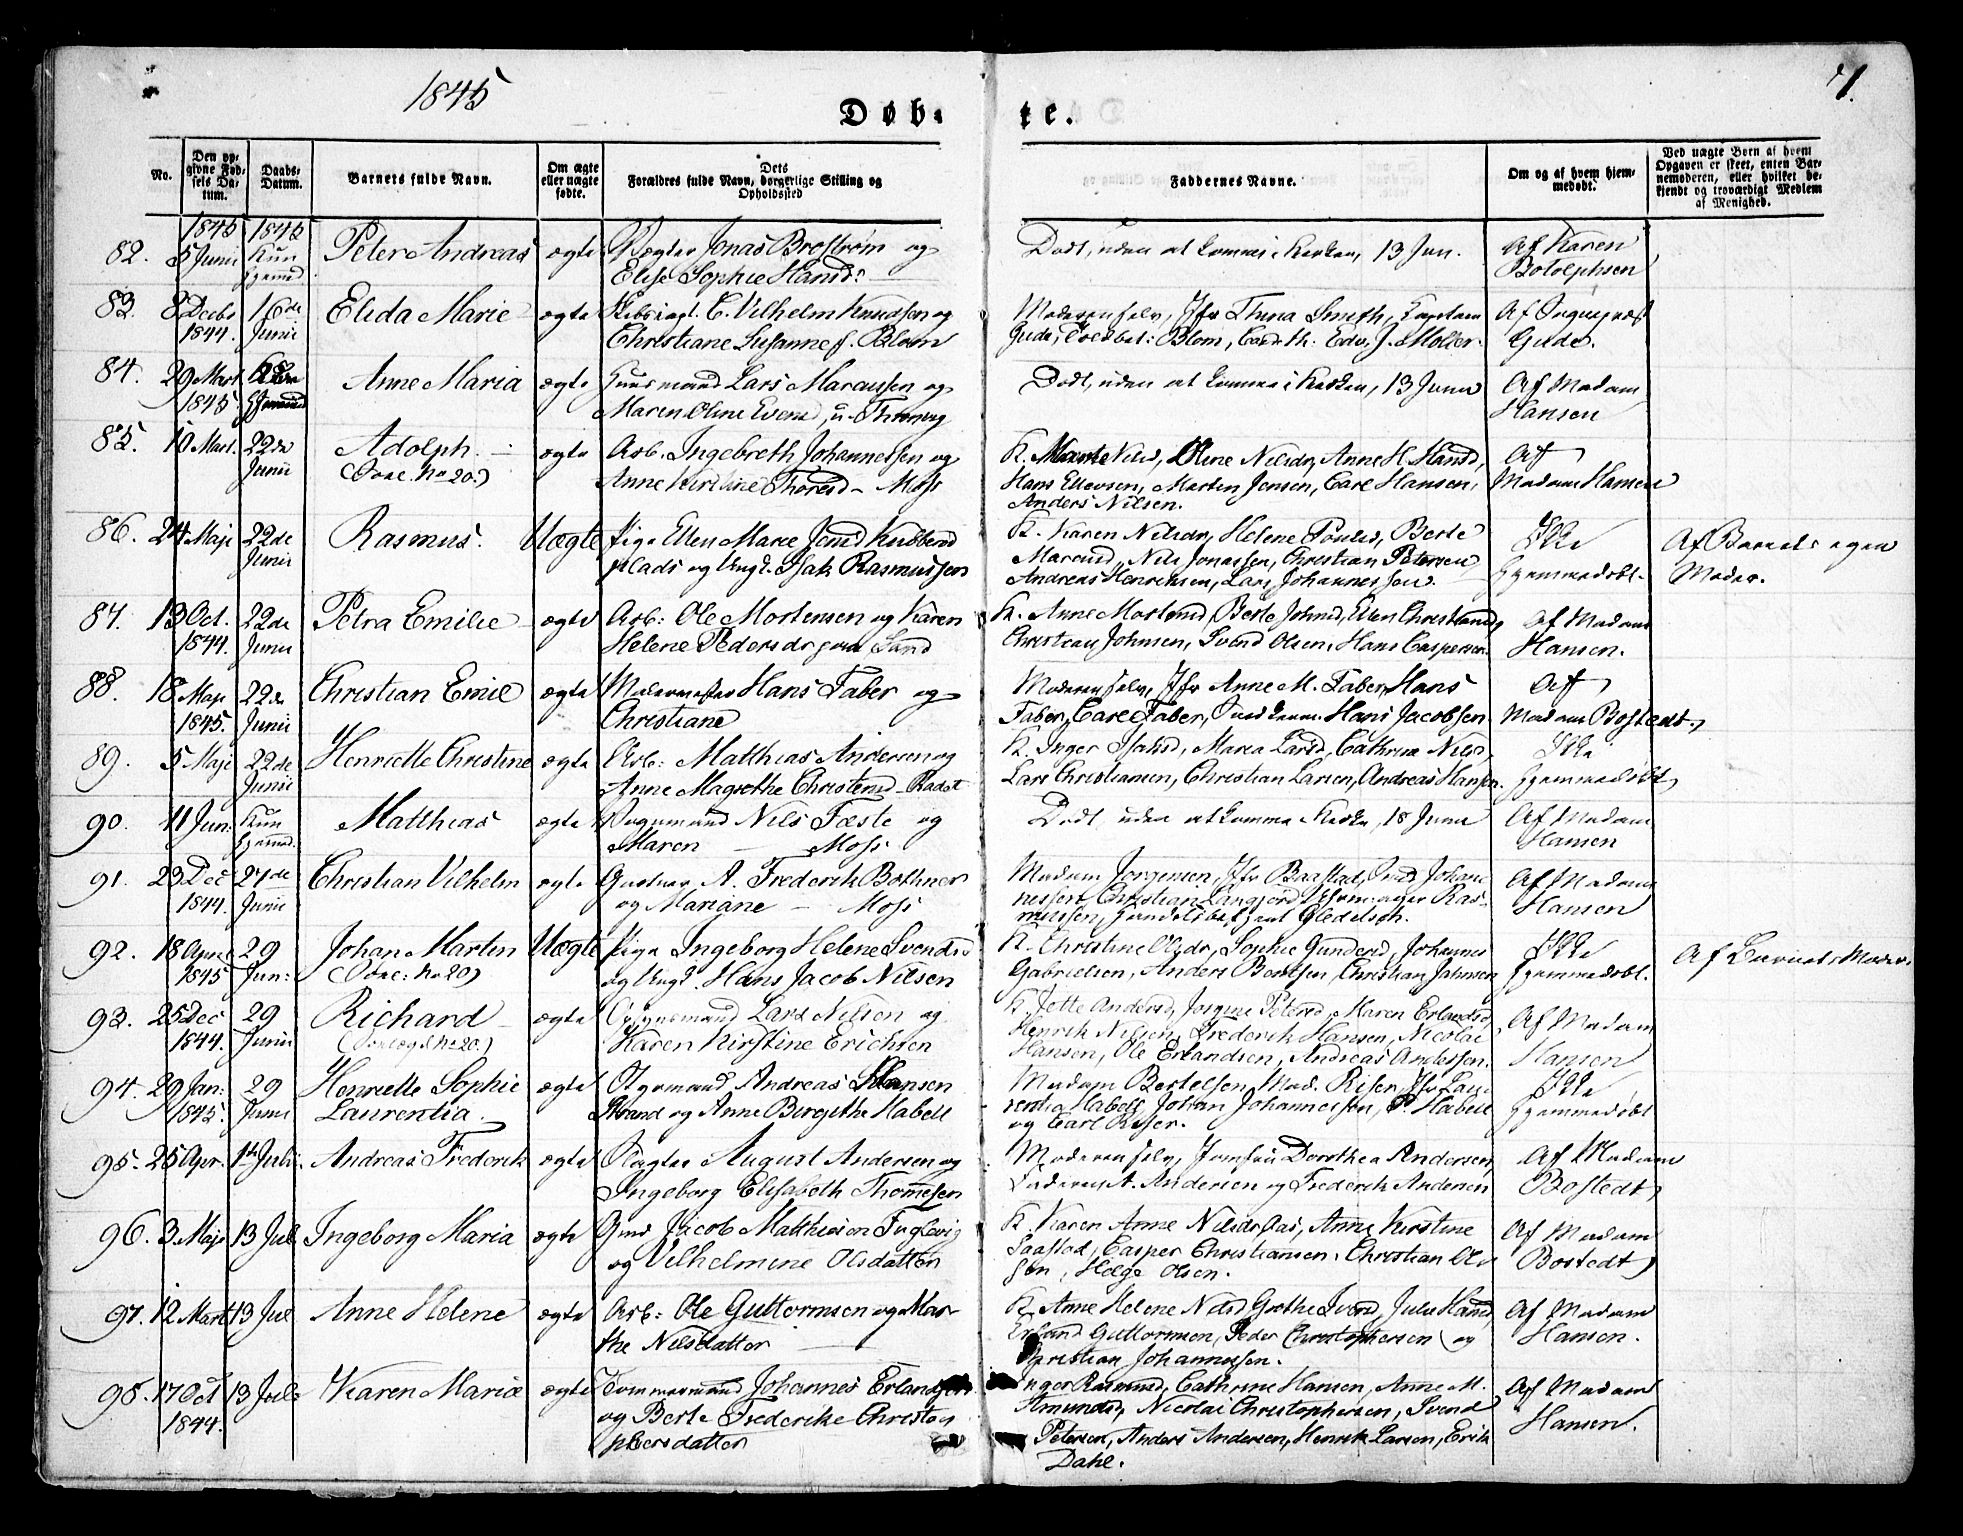 1845
71.
Døb-
te.
No.
Den opgivne Fødsels Datum.
Daabs-Datum.
Barnets fulde Navn.
Om ægte eller uægte fødte.
Dets Forældres fulde Navn, borgerlige Stilling og Opholdssted
Faddernes Navne.
Om og af hvem hjemmedøbt.
Ved uægte Børn af hvem Opgaven er skeet, enten Barnemoderen, eller hvilket bekjendt og troværdigt Medlem af Menighed.
1845 1845
82. 5 Junii Kun Peter Andreas ægte Jonas Broström og Dødt, uden at komme i Kirken, 13 Jun. Af Karen
Elise Sophie Hansd: Botolphsen
83. 8 Decbr 16de Elida Marie ægte C. Vilhelm Knudsen og Moderen selv, Jfr Smith, Af
1844. Junii Christiane Susanne f. Blom Gude, Blom, J. Møller. Gude.
84. 29 Mart Anne Maria ægte Huusmand Lars Marcussen og Dødt, uden at komme i Kirken, 13 Junii Af Madam
1845 Maren Oline Evensd, u. Hansen
85. 10 Mart. 22de Adolph. ægte Arb. Ingebreth Johannessen og K. Nilsd, Oline Nilsdr, Anne H. Hansd, Af
Junii No 20.) Anne Kirstine Thoresd - Moss Hans Ellevsen, Morten Jensen, Carl Hansen, Madam Hansen
Anders Nilsen.
86. 24 Maji 22de Rasmus. Uægte Pige Ellen Marie Jensd K. Karen Nilsdr, Helene Poulsd, Berte Ikke Af Barnets egen
Junii plads og Ungk. Isak Rasmussen Marcusd, Nils Jonassen, Christian Petersen Hjemmedøbt. Moder.
Andreas Henriksen, Lars Johannessen
87. 13 Oct. 22de Petra Emilie ægte Arb: Ole Mortensen og Karen K. Anne Mortensd, Berte Johnsd, Ellen Christiansd, Af Madam
1844. Junii Helene Pedersdr Sand Christian Johnsen, Svend Olsen, Hans Caspersen. Hansen.
88. 18 Maji 22de Christian Emil ægte Hans Faber og Moderen selv, Jfr Anne M. Faber, Hans Af
1845. Junii Christiane Faber, Carl Faber, Hans Jacobsen. Madam Bostedt.
89. 5 Maji 22de Henriette Christine ægte Arb: Matthias Andersen og K. Inger Isaksd, Maria Larsd, Cathrine Nilsd, Ikke
Junii Anne Magrethe Christensd - Lars Christiansen, Christian Larsen, Andreas Hansen. Hjemmedøbt
90. 11 Jun: Kun Matthias ægte Nils Fæste og Dødt, uden at komme i Kirken, 18 Junii Af Madam
Maren — Moss Hansen
91. 23 Dec 27de Christian Vilhelm ægte A. Frederik Bothner Madam Jørgensen, Jfr Johan- Af Madam
1844. Junii og Mariane — Moss nessen, Christian Langjord, Ras- Hansen
mussen,
92. 18 April 29 Johan Martin Uægte Pige Ingeborg Helene Svendsd K. Christine Olsdr, Sophie Gundersd, Johannes Ikke Af Barnets Moder.
1845 Jun: No 20) og Ungk. Hans Jacob Nilsen Gabrielsen, Anders Berntsen, Christian Johnsen Hjemmedøbt.
93. 25 Dec 29 Richard ægte Lars Nilsen og K. Jette Andersd, Jørgine Petersd, Maren Erlandsd, Af Madam
1844. Junii No 20.) Karen Kirstine Erichsen Henrik Nilsen, Frederik Hansen, Nicolai Hansen
Hansen, Ole Erlandsen, Andreas Anderssen.
94. 29 Jan: 29 Henriette Sophie ægte Andreas Hansen Madam Bertelsen, Mad. Riser, Jfr Lau- Ikke
1845. Junii Laurentia. Strand og Anne Birgithe Habell rentia Habell, Johan Johannessen, P. Habell Hjemmedøbt
og Carl Riser.
95. 25 Apr. 1te Juli. Andreas Frederik ægte August Andersen og Moderen selv, Jomfru Dorothea Andersen, Af Madam
Ingeborg Elisabeth Thomesen A. Andersen og Frederik Andersen Bostedt
96. 3 Maji 13 Jul Ingeborg Maria ægte Jacob Matthiesen Fuglevig K. Karen Anne Nilsdr Aas, Anne Kirstine Af Madam
og Vilhelmine Olsdatter Saastad, Casper Christiansen, Christian Ol- Bostedt
sen, Helge Olsen.
97. 12 Mart 13 Jul Anne Helene ægte Arb: Ole Guttormsen og Mar- K. Anne Helene Nilsd, Grethe Svend, Julie Hansd, Af Madam
the Nilsdatter — Erland Guttormsen, Peder Christophersen og Hansen.
Christian Johannessen.
98. 17 Oct 13 Jul: Karen Maria ægte Tømmermand Johannes Erlandsen Inger Rasmusd, Cathrine Hansen, Anne M. Af Madam
1844. og Berte Frederike Christo- Amundsd, Nicolai Christophersen, Svend Hansen.
phersdatter Petersen, Anders Andersen, Henrik Larsen, Erik
Dahl.